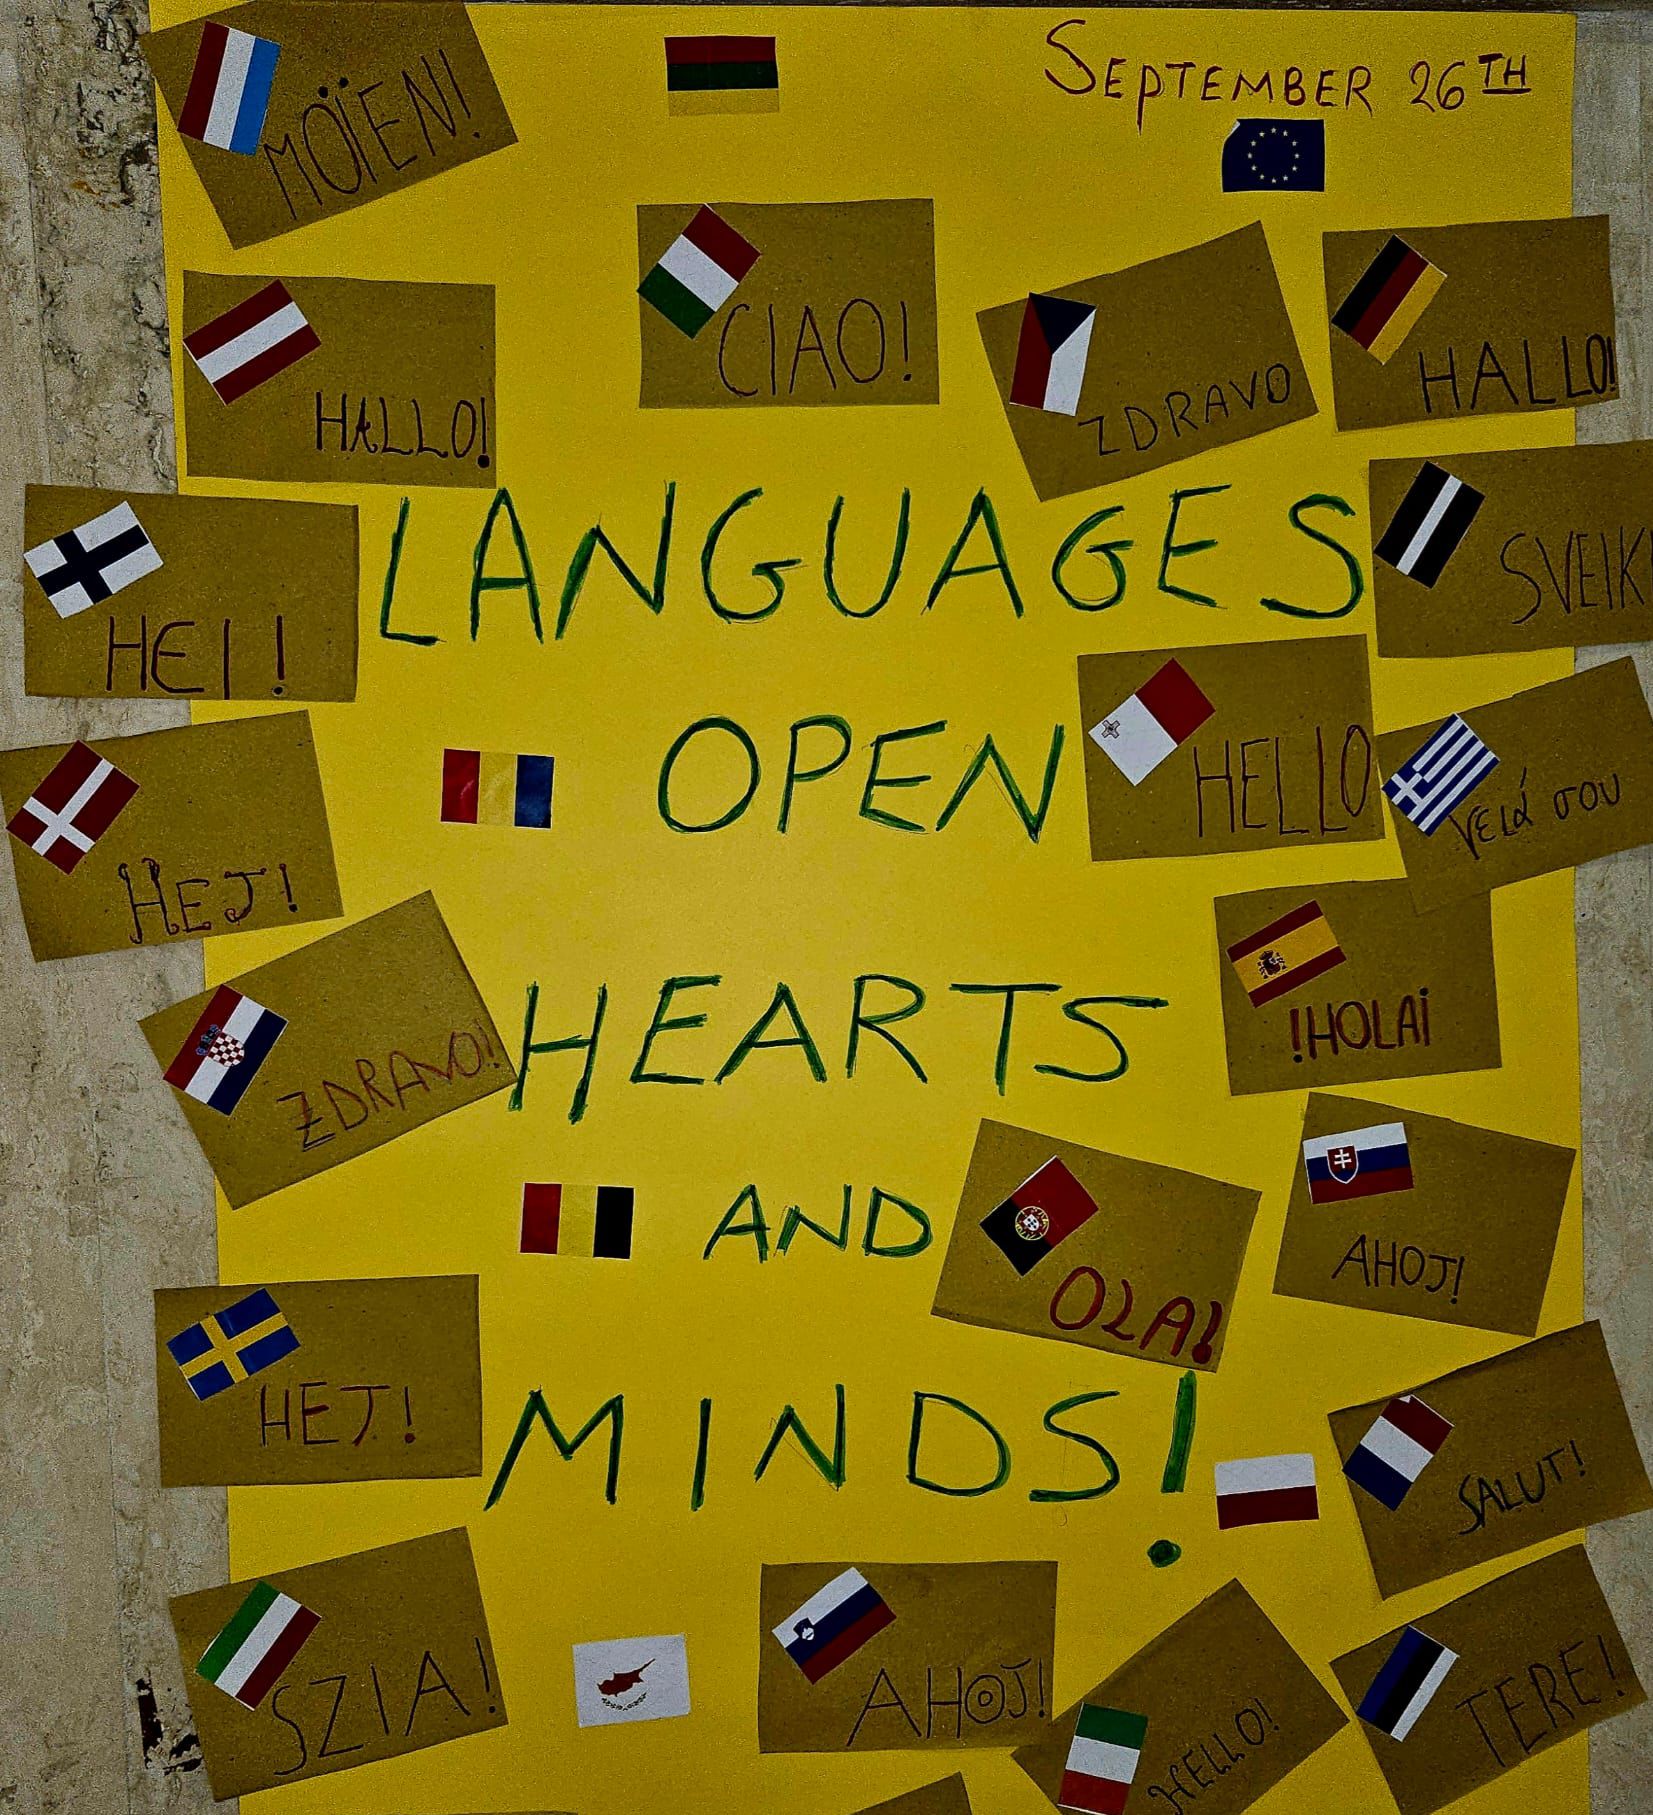 MOÏEN!
SEPTEMBER 26TH
CIAO!
HALLO!
ZDRAVO
HALLO!
LANGUAGES
HEI!
OPEN
HELLO
γειά σου
HEJ!
HEARTS
!HOLA¡
ZDRAVO!
AND
OLA!
AHOJ!
HEJ!
MINDS!
SALUT!
SZIA!
AHOJ!
HELLO!
TERE!